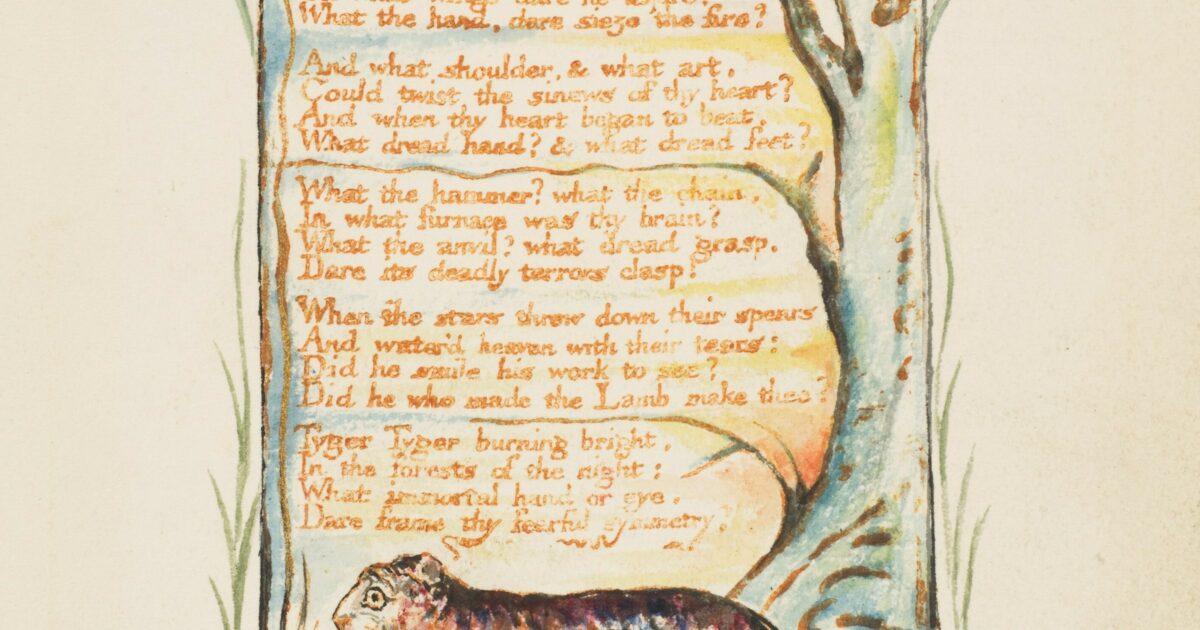 What the hand, dare sieze the fire?
And what shoulder, & what art,
Could twist the sinews of thy heart?
And when thy heart began to beat,
What dread hand? & what dread feet?
What the hammer? what the chain,
In what furnace was thy brain?
What the anvil? what dread grasp,
Dare its deadly terrors clasp!
When the stars threw down their spears
And water'd heaven with their tears:
Did he smile his work to see?
Did he who made the Lamb make thee?
Tyger Tyger burning bright,
In the forests of the night:
What immortal hand or eye,
Dare frame thy fearful symmetry?